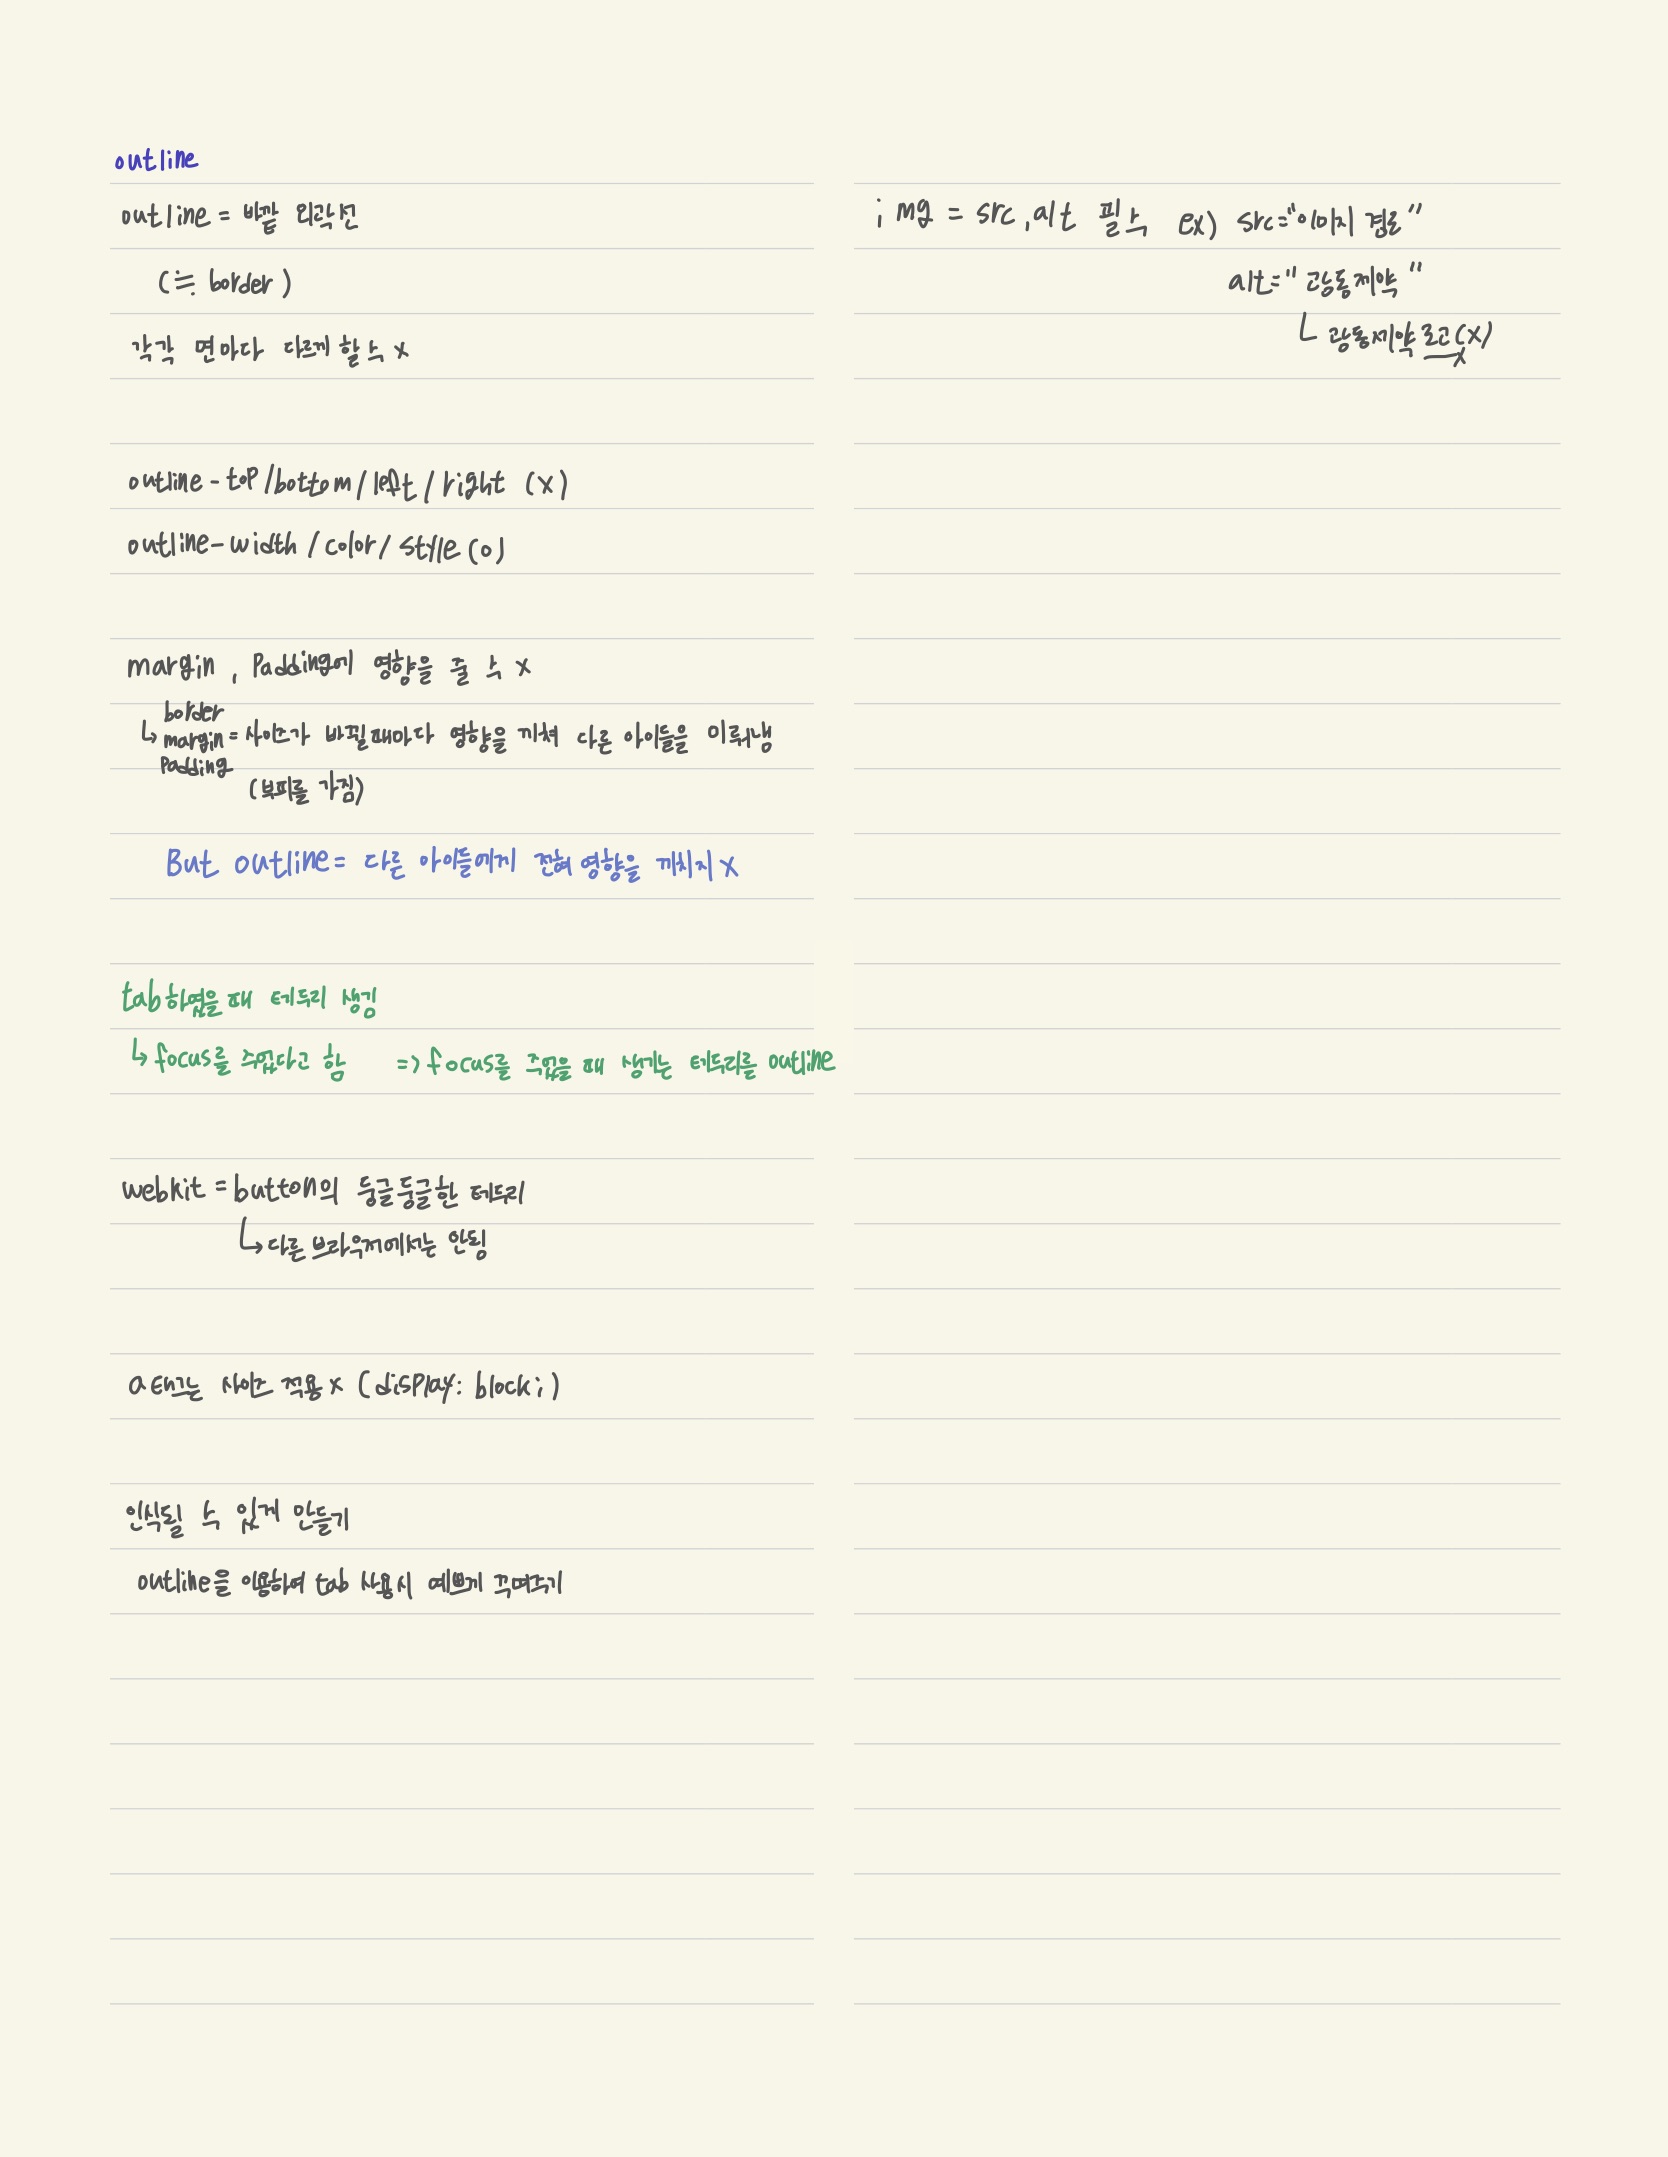 outline
outline = 바깥 외곽선
(≒ border)
각각 면마다 다르게 할 수 x
outline - top/bottom/left/right (x)
outline-width/color/style (o)
margin, Padding에 영향을 줄 수 x
↳ border
margin = 사이즈가 바뀔때마다 영향을 끼쳐 다른 아이들을 미뤄냄
Padding
(부피를 가짐)
But outline = 다른 아이들에게 전혀 영향을 끼치지 x
tab하였을 때 테두리 생김
↳ focus를 주었다고 함 => focus를 주었을 때 생기는 테두리를 outline
webkit = button의 둥글둥글한 테두리
↳ 다른 브라우저에서는 안됨
a태그는 사이즈 적용 x (display: block;)
인식될 수 있게 만들기
outline을 이용하여 tab 사용시 예쁘게 꾸며주기
img = src, alt 필수 ex) src="이미지 경로"
alt="광동제약"
ㄴ 광동제약 로고(x)
x